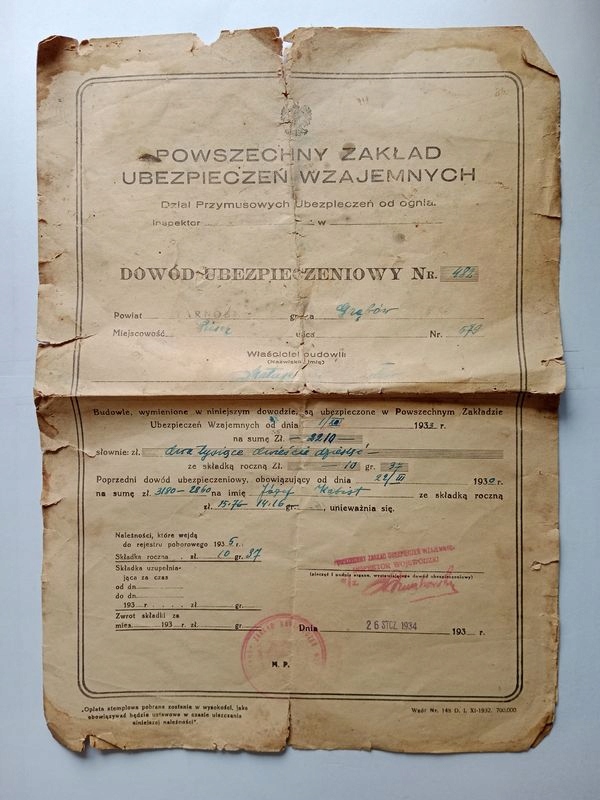 POWSZECHNY ZAKŁAD
UBEZPIECZEŃ WZAJEMNYCH
Dział Przymusowych Ubezpieczeń od ognia.
Inspektor w
DOWÓD UBEZPIECZENIOWY NR. 482
Powiat gmina Grębów
Miejscowość ulica Nr. 679
Właściciel budowli
(Nazwisko i imię)
Budowle, wymienione w niniejszym dowodzie, są ubezpieczone w Powszechnym Zakładzie
Ubezpieczeń Wzajemnych od dnia 1/XII 1933 r.
na sumę Zł. — 2210 —
słownie: zł. dwa tysiące dwieście dziesięć —
ze składką roczną Zł. — 10 gr. 37
Poprzedni dowód ubezpieczeniowy, obowiązujący od dnia 22/III 1930 r.
na sumę zł. 3180-2860 na imię Józef ze składką roczną
zł. 15.76 14.16 gr. unieważnia się.
Należności, które wejdą
do rejestru poborowego 1935 r.
Składka roczna . zł. 10 gr. 37
Składka uzupełnia-
jąca za czas
od dn.
do dn.
193 r . . . zł. gr.
Zwrot składki za
mies. 193 r. zł. gr.
POWSZECHNY ZAKŁAD UBEZPIECZEŃ WZAJEMNYCH
INSPEKTOR WOJEWÓDZKI
(pieczęć i podpis organu, wystawiającego dowód ubezpieczeniowy)
Dnia 26 STCZ. 1934 193 r.
M. P.
„Opłata stemplowa pobrana zostanie w wysokości, jaka
obowiązywać będzie ustawowo w czasie uiszczania
niniejszej należności".
Wzór Nr. 148 D. I. XI-1932. 700.000